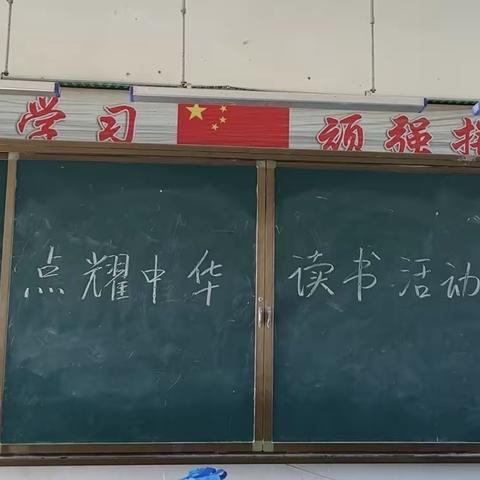 学习 顽强
点耀中华 读书活动